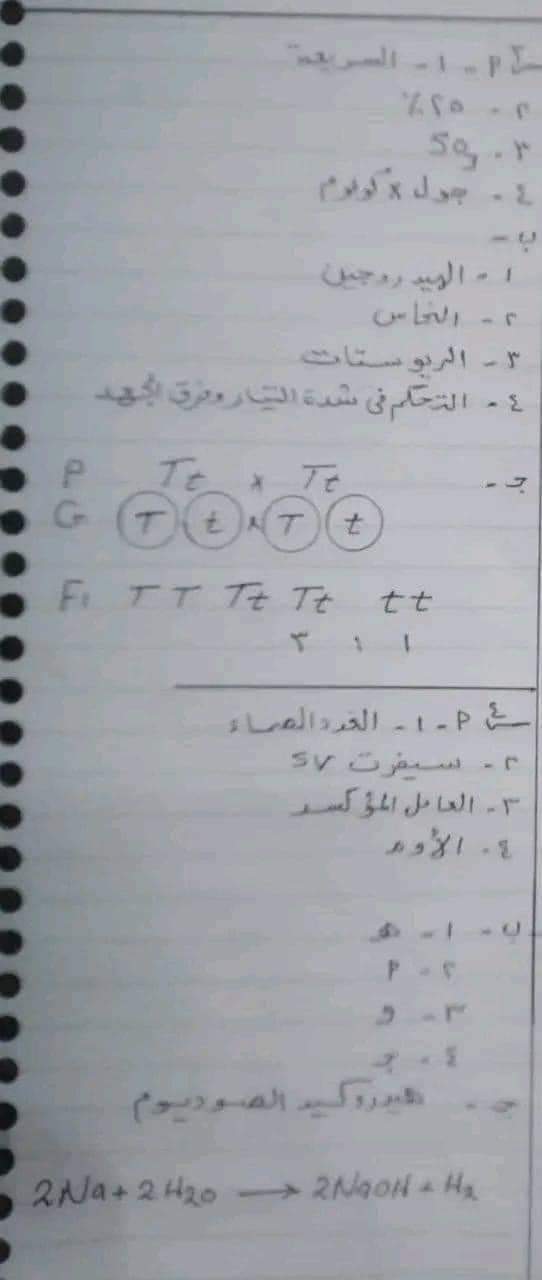 س٣ أ - ١ - السريعة
٢ - ٢٥٪
٣ - So₃
٤ - جول × كولوم
ب -
١ - الهيدروجين
٢ - النحاس
٣ - الريوستات
٤ - التحكم فى شدة التيار وفرق الجهد
ج - P Tt × Tt
G T t × T t
F₁ TT Tt Tt tt
٣ : ١
س٤ أ - ١ - الغدد الصماء
٢ - سيفرت sv
٣ - العامل المؤكسد
٤ - الأوم
ب - ١ - هـ
٢ - أ
٣ - و
٤ - ج
ج - هيدروكسيد الصوديوم
2Na + 2H₂O → 2NaOH + H₂